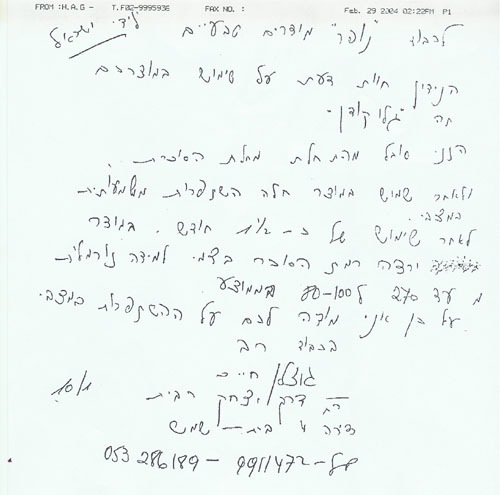 FROM : H.A.G - T.F02-9995936 FAX NO. : Feb. 29 2004 02:22PM P1
לכבוד "נופר" מוצרים טבעיים לידי ישראל
הנידון חוות דעת על שימוש במוצרכם
תה "גלוקודן"
הנני סובל מתחלת מחלת הסוכרת.
ולאחר שמוש במוצר חלה השתפרות משמעותית
במצבי.
לאחר שימוש של כ- 2½ חודש. במוצר
ירדה רמת הסוכר בצמי למידה נורמלית
מ עד 270 ל 80-100 בממוצע
על כן אני מודה לכם על ההשתפרות במצבי.
בכבוד רב
חיים
דרך יצחק רבין
דירה 4 בית שמש
053 286189 - 9911472